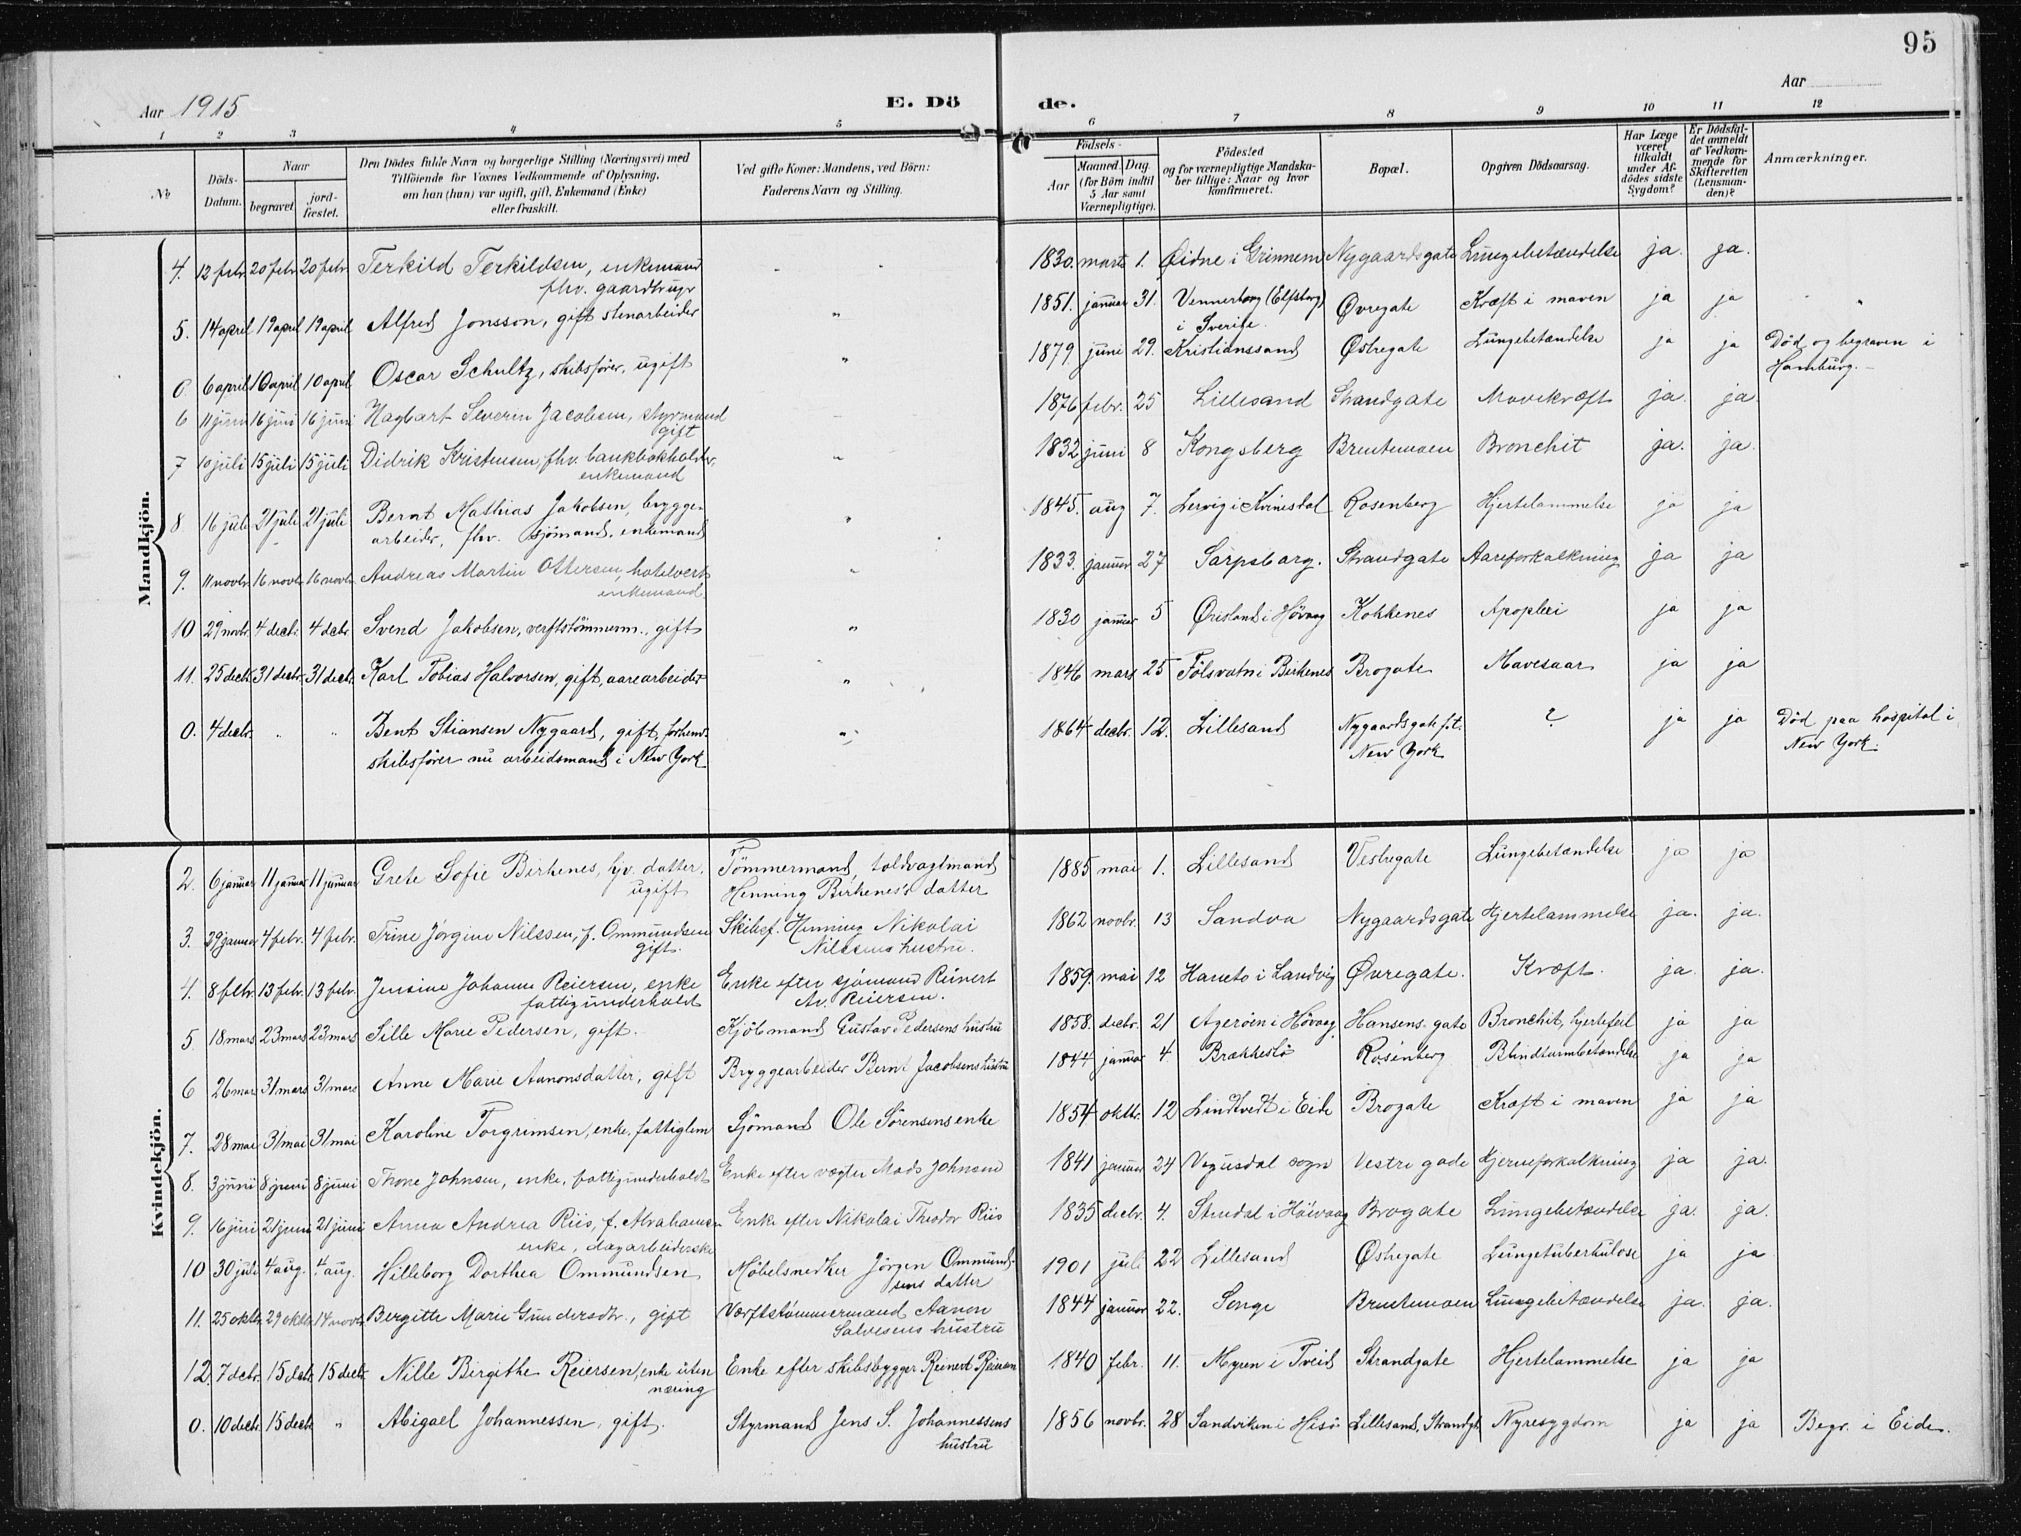 95
Aar 1915 E. Dö de. Aar
1 2 3 4 5 6 7 8 9 10 11 12
No Döds-Datum. Naar begravet. jord-fæstet. Den Dödes fulde Navn og borgerlige Stilling (Næringsvei) med Tilföiende for Voxnes Vedkommende af Oplysning, om han (hun) var ugift, gift, Enkemand (Enke) eller fraskilt. Ved gifte Koner: Mandens, ved Börn: Faderens Navn og Stilling. Födsels- Aar Maaned Dag (for Börn indtil 5 Aar samt Værnepligtige). Födested og for værnepligtige Mandska-ber tillige: Naar og hvor konfirmeret. Bopæl. Opgiven Dödsaarsag. Har Læge været tilkaldt under Af-dödes sidste Sygdom? Er Dödsfal-det anmeldt af Vedkom-mende for Skifteretten (Lensman-den)? Anmærkninger.
Mandkjön.
4. 12 febr. 20 febr. 20 febr. Terkild Terkildsen, enkemand fhv. gaardbrugr " 1830. marts 1. Øidne i Grinnem Nygaardsgate Lungebetændelse ja. ja.
5. 14 april 19 april 19 april Alfred Jonsson, gift stenarbeider " 1851. januar 31. Vennerborg (Elfsborg) i Sverige. Øvregate Kræft i maven ja ja "
0 6 april 10 april 10 april Oscar Schultz, skibsfører, ugift " 1879 juni 29. Kristianssand Østregate Lungebetændelse ja ja Død og begraven i Hamburg.
6 11 juni 16 juni 16 juni Hagbart Severin Jacobsen, styrmand gift 1876 febr. 25 Lillesand Strandgate Mavekræft ja. ja.
7 10 juli 15 juli 15 juli Didrik Kristensen, fhv. bankbokholder, enkemand " 1832 juni 8 Kongsberg Brentemoen Bronchit ja. ja.
8 16 juli 21 juli 21 juli Bernt Mathias Jakobsen, brygge-arbeider, fhv. sjømand, enkemand " 1845. aug 7. Lervig i Kvinesdal Rosenberg Hjertelammelse ja ja
9. 11 novbr. 16 novbr. 16 novbr. Andreas Martin Ottersen, hotelvert enkemand. " 1833. januar 27 Sarpsborg. Strandgate Aareforkalkning ja ja
10 29 novbr. 4 decbr. 4 dcbr. Svend Jakobsen, verftstømmerm., gift " 1830 januar 5 Ørisland i Høvaag Kokkenes Apoplexi ja ja
11. 25 decbr. 31 decbr. 31 decbr. Karl Tobias Halvorsen, gift, aarearbeider " 1846 mars 25 Fölsvatn i Birkenes Brogate Mavesaar ja ja
0. 4 decbr. " " Bent Stiansen Nygaard, gift, forhenv. skibsfører nu arbeidsmand i New York " 1864 decbr. 12. Lillesand Nygaardsgate f.t. New York ? ja ja Död paa hospital i New York.
Kvindekjön.
2. 6 januar 11 januar 11 januar Grete Sofie Birkenes, hjv. datter, ugift Tömmermand, toldvagtmand Henning Birkenes's datter 1885 mai 1. Lillesand Vestregate Lungebetændelse ja ja
3. 29 januar 4 febr. 4 febr. Trine Jörgine Nilssen, f. Ommundsen gift. Skibsf. Henning Nikolai Nilssens hustru. 1862 novbr. 13 Sandva Nygaardsgate Hjertelammelse ja. ja.
4. 8 febr. 13 febr. 13 febr. Jensine Johanne Reiersen, enke fattigunderholdt Enke efter sjømand Reinert Av. Reiersen. 1859. mai 12 Haneto i Landvig Øvregate. Kræft. ja. ja.
5. 18 mars 23 mars 23 mars Sille Marie Pedersen, gift. Kjöbmand Gustav Pedersens hustru 1858. decbr. 21 Agerøen i Høvaag Hansens gate Bronchit, hjertefeil ja ja
6 26 mars 31 mars 31 mars Anne Marie Aanonsdatter, gift Bryggearbeider Bernt Jacobsens hustru 1844 januar 4 Brækkestö Rosenberg Blindtarmbetændelse ja ja
7. 28 mai 31 mai 31 mai Karoline Torgrimsen, enke, fattiglem Sjömand Ole Sörensens enke 1854 oktbr. 12 Lindtvedt i Eide Brogate Kræft i maven ja ja
8. 3 juni 8 juni 8 juni Thone Johnsen, enke, fattigunderholdt Enke efter vægter Mads Johnsen 1841 januar 24 Vegusdal sogn Vestre gade Hjerneforkalkning ja ja.
9. 16 juni 21 juni 21 juni Anna Andrea Riis, f. Abrahamsen enke, dagarbeiderske Enke efter Nikolai Theodor Riis 1835 decbr. 4. Stendal i Høivaag Brogate Lungebetændelse ja. ja.
10 30 juli 4 aug. 4. aug. Hilleborg Dorthea Ommundsen Möbelsnedker Jörgen Ommund-sens datter 1901 juli 22 Lillesand Østregate Lungetuberkulose ja ja
11. 25 oktbr. 29 oktbr. 14 novbr. Bergitte Marie Gundersdtr., gift Værftstömmermand Aanon Salvesens hustru 1844 januar 22. Songe Brentemoen Lungebetændelse ja. ja.
12. 7 dcbr. 15 dcbr. 15 decbr. Nille Birgithe Reiersen, enke uten næring Enke efter skibsbygger Reinert Reiersen 1840 febr. 11. Myren i Tveid Strandgate Hjertelammelse ja ja
0. 10 decbr. 15 decbr. " Abigael Johannessen, gift. Styrmand Jens S. Johannessens hustru 1856 novbr. 28 Sandviken i Hisö Lillesand, Strandgt. Nyresygdom ja ja Begr. i Eide.